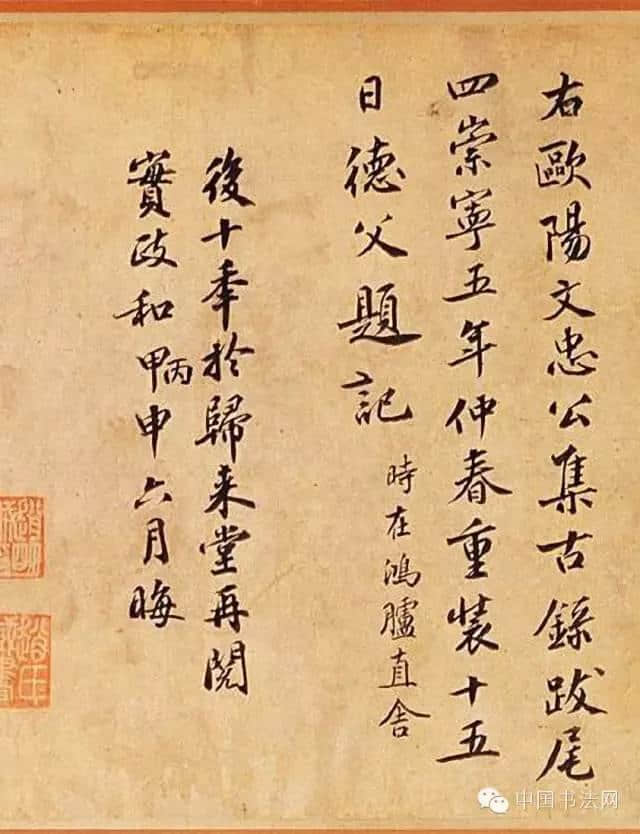 右歐陽文忠公集古錄跋尾
四崇寧五年仲春重裝十五
日德父題記
時在鴻臚直舍
後十年於歸来堂再閱
實政和甲丙申六月晦
中国书法网